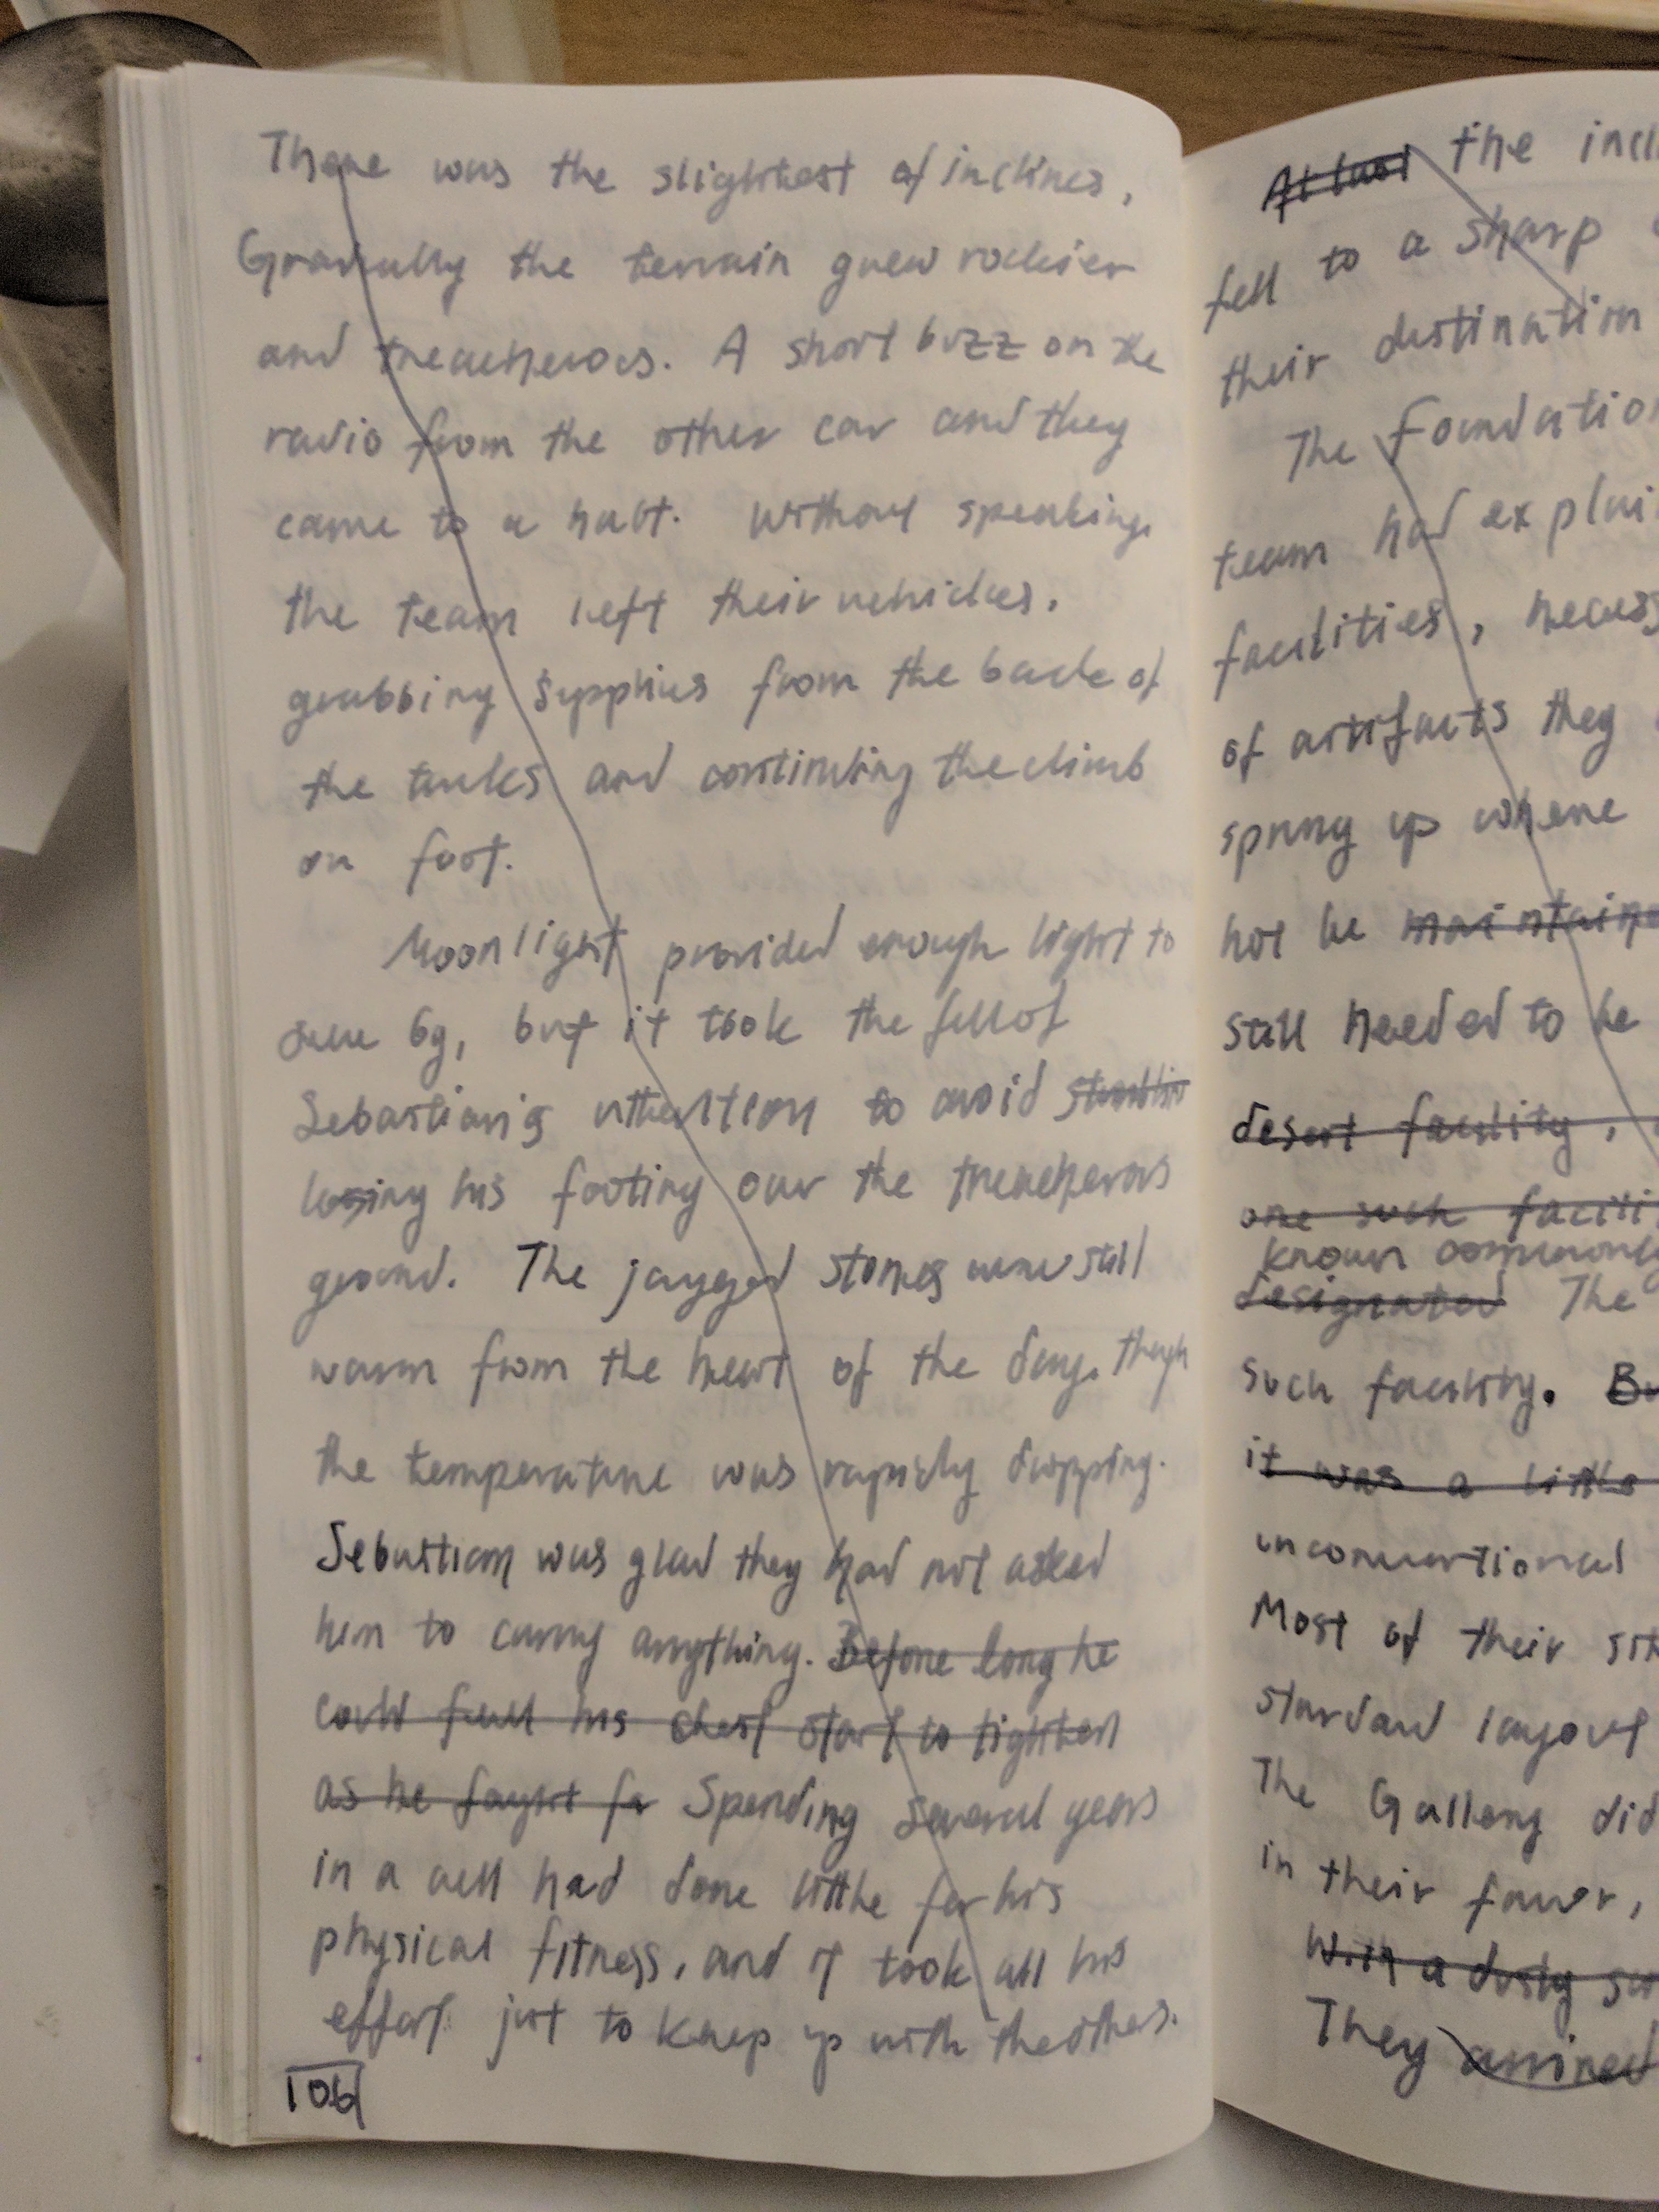 There was the slightest of inclines,
Gradually the terrain grew rockier
and treacherous. A short buzz on the
radio from the other car and they
came to a halt. Without speaking,
the team left their vehicles,
grabbing supplies from the back of
the tanks and continuing the climb
on foot.
Moonlight provided enough light to
see by, but it took the full of
Sebastian's attention to avoid stumblin
losing his footing over the treacherous
ground. The jagged stones were still
warm from the heat of the day, though
the temperature was rapidly dropping.
Sebastian was glad they had not asked
him to carry anything. Before long he
could feel his chest start to tighten
as he fought fo Spending several years
in a cell had done little for his
physical fitness, and it took all his
effort just to keep up with the others.
106
At last the incl
fell to a sharp
their destination
The Foundation
team had explai
facilities, necess
of artifacts they
sprung up where
not be maintaine
still needed to be
desert facility,
one such facili
known commonly
designated The
such facility. Bu
it was a little
unconventional
Most of their sit
standard layout
The Gallery did
in their favor,
With a dusty
They arrived